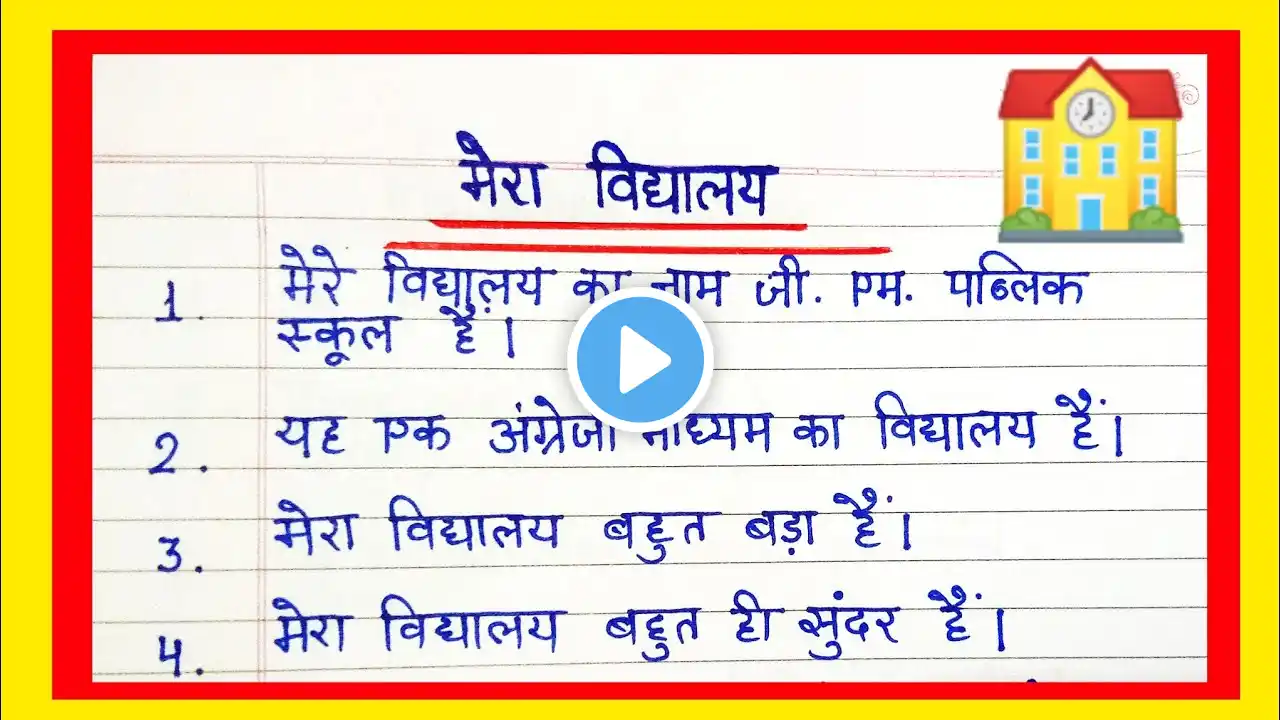 मेरा विद्यालय
1. मेरे विद्यालय का नाम जी. एम. पब्लिक
स्कूल हैं।
2. यह एक अंग्रेजी माध्यम का विद्यालय हैं।
3. मेरा विद्यालय बहुत बड़ा हैं।
4. मेरा विद्यालय बहुत ही सुंदर हैं।